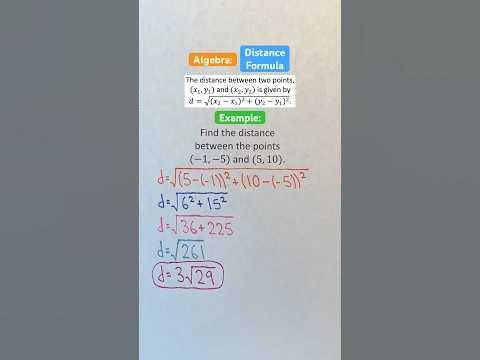 Algebra:
Distance
Formula
The distance between two points,
(x₁, y₁) and (x₂, y₂) is given by
d = √(x₂ − x₁)² + (y₂ − y₁)².
Example:
Find the distance
between the points
(−1, −5) and (5, 10).
d=√(5-(-1))²+(10-(-5))²
d=√6²+15²
d=√36+225
d=√261
d=3√29